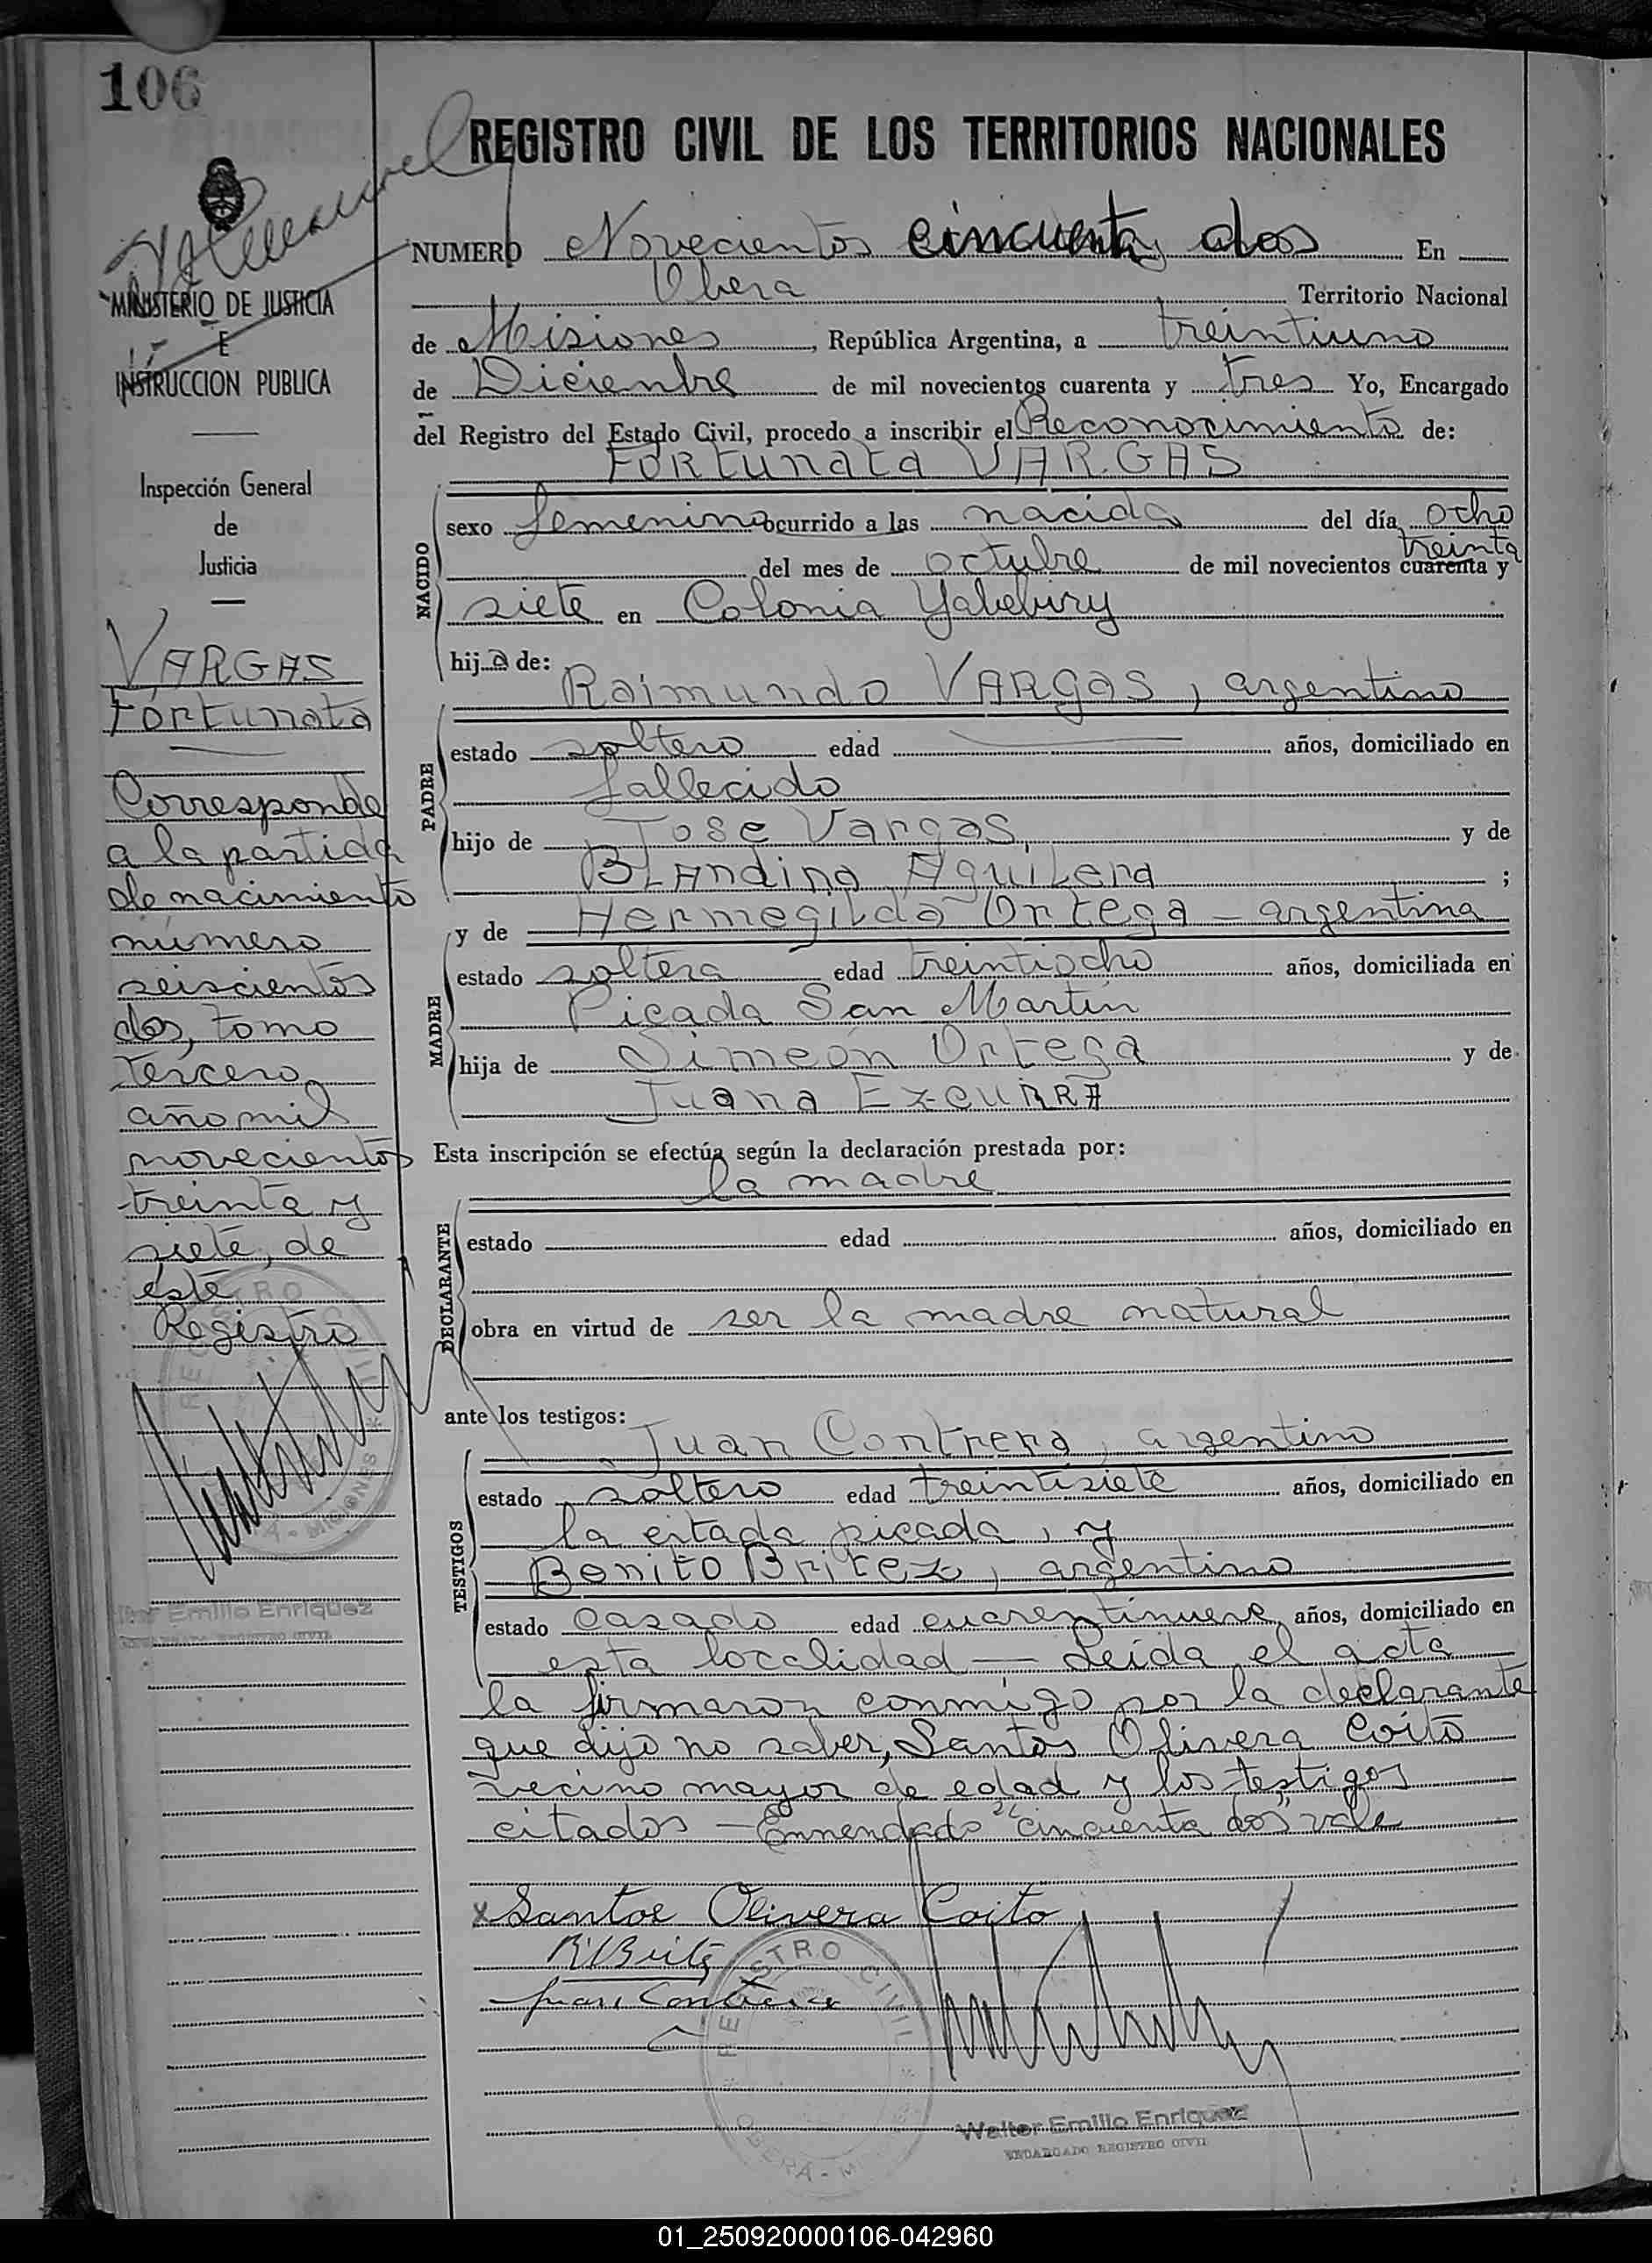 106
REGISTRO CIVIL DE LOS TERRITORIOS NACIONALES
NUMERO Novecientos cincuenta dos En
Obera Territorio Nacional
de Misiones, República Argentina, a treintiuno
de Diciembre de mil novecientos cuarenta y tres Yo, Encargado
del Registro del Estado Civil, procedo a inscribir el Reconocimiento de:
Fortunata VARGAS
NACIDO
sexo femenino ocurrido a las nacida del día ocho
treinta
del mes de octubre de mil novecientos cuarenta y
siete en Colonia Yabebury
hija de:
Raimundo VARGAS, argentino
PADRE
estado soltero edad años, domiciliado en
fallecido
hijo de Jose Vargas, y de
BLAndina Aguilera ;
y de Hermegilda Ortega - argentina
MADRE
estado soltera edad treintiocho años, domiciliada en
Picada San Martin
hija de Simeón Ortega y de
Juana EzcuRRA
Esta inscripción se efectúa según la declaración prestada por:
la madre
DECLARANTE
estado edad años, domiciliado en
obra en virtud de ser la madre natural
ante los testigos:
Juan Contrera, argentino
TESTIGOS
estado soltero edad treintisiete años, domiciliado en
la citada picada, y
Benito Britez, argentino
estado casado edad cuarentinueve años, domiciliado en
esta localidad — Leída el acta
la firmaron conmigo por la declarante
que dijo no saber, Santos Olivera Coito
vecino mayor de edad y los testigos
citados — Enmendado "cincuenta dos" vale
Santos Olivera Coito
Juan Contrera
REGISTRO CIVIL
OBERA - M
Walter Emilio Enriquez
ENCARGADO REGISTRO CIVIL
MINISTERIO DE JUSTICIA
E
INSTRUCCION PUBLICA
Inspección General
de
Justicia
VARGAS
Fortunata
Corresponde
a la partida
de nacimiento
número
seiscientos
dos, tomo
tercero
año mil
novecientos
treinta y
siete, de
este
Registro
REGISTRO CIVIL
MISIONES
Emilio Enriquez
ENCARGADO REGISTRO CIVIL
01_250920000106-042960